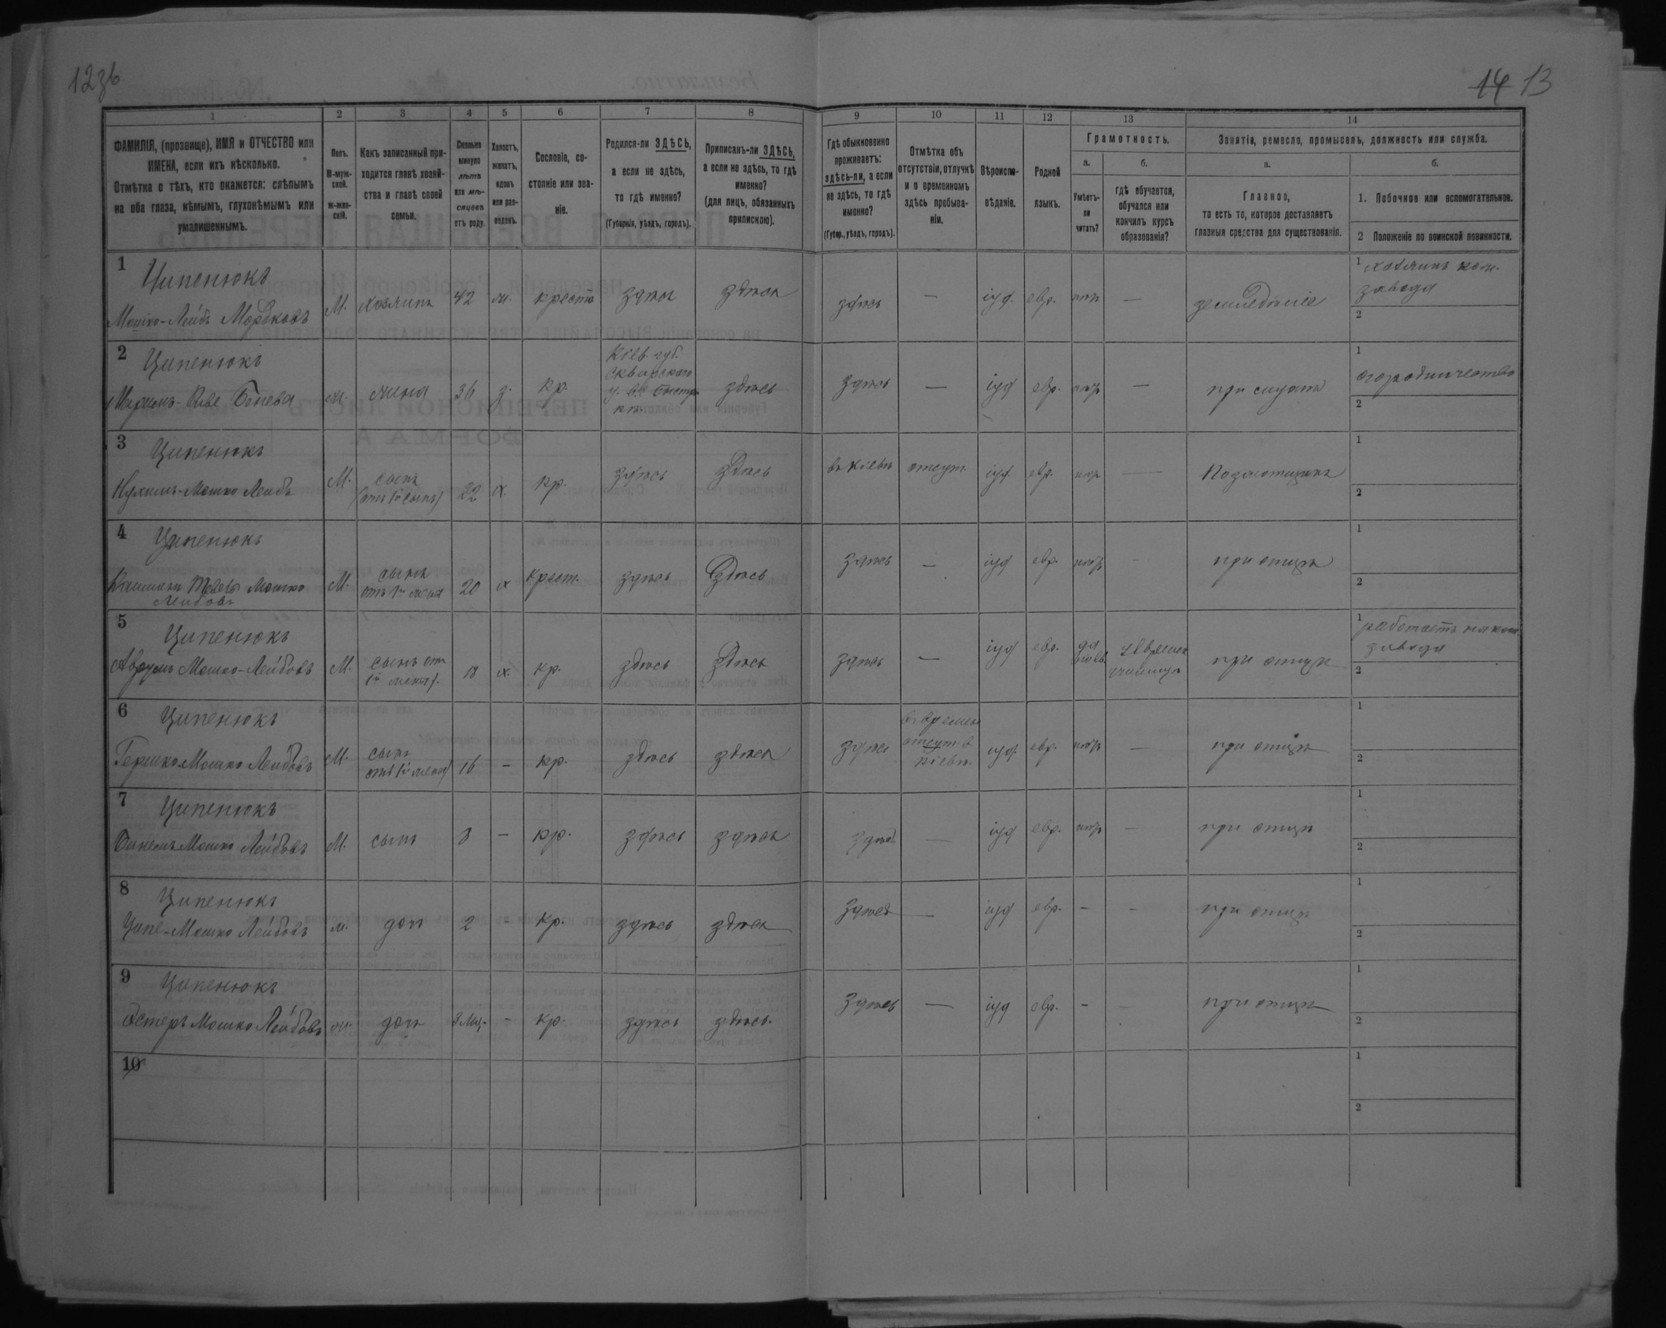 12 об
14 13
1 2 3 4 5 6 7 8 9 10 11 12 13 14
ФАМИЛІЯ, (прозвище), ИМЯ и ОТЧЕСТВО или ИМЕНА, если ихъ нѣсколько.
Отмѣтка о тѣхъ, кто окажется: слѣпымъ на оба глаза, нѣмымъ, глухонѣмымъ или умалишеннымъ.
Полъ.
М-мужской.
ж-женскій.
Какъ записанный приходится главѣ хозяйства и главѣ своей семьи.
Сколько минуло лѣтъ или мѣсяцевъ отъ роду.
Холостъ, женатъ, вдовъ или разведенъ.
Сословіе, состояніе или званіе.
Родился-ли ЗДѢСЬ, а если не здѣсь, то гдѣ именно?
(Губернія, уѣздъ, городъ).
Приписанъ-ли ЗДѢСЬ, а если не здѣсь, то гдѣ именно?
(для лицъ, обязанныхъ припискою).
Гдѣ обыкновенно проживаетъ: здѣсь-ли, а если не здѣсь, то гдѣ именно?
(Губер., уѣздъ, городъ).
Отмѣтка объ отсутствіи, отлучкѣ и о временномъ здѣсь пребываніи.
Вѣроисповѣданіе.
Родной языкъ.
Грамотность.
а. б.
Умѣетъ-ли читать?
гдѣ обучается, обучался или кончилъ курсъ образованія?
Занятіе, ремесло, промыселъ, должность или служба.
а. б.
Главное,
то есть то, которое доставляетъ главныя средства для существованія.
1. Побочное или вспомогательное.
2 Положеніе по воинской повинности.
1 Ципенюкъ
Мошко-Лейбъ Мордковъ М. хозяинъ 42 ж. крест здѣсь здѣсь здѣсь — іуд. евр. нѣтъ — земледѣліе
1 хозяинъ
завода
2
2 Ципенюкъ
жена 36 з. кр. Кіев. губ.
Сквирскаго
у.
здѣсь здѣсь — іуд евр. нѣтъ — при мужѣ
1 огородничество
2
3 Ципенюкъ
Нухимъ-Мошко Лейбъ М. сынъ 22 х кр. здѣсь здѣсь въ Кіевѣ отсут іуд. евр. нѣтъ —
1
2
4 Ципенюкъ
Мошко
Лейбовъ М. сынъ
отъ 1й жены 20 х крест. здѣсь здѣсь здѣсь — іуд евр. нѣтъ при отцѣ
1
2
5 Ципенюкъ
Аврумъ Мошко-Лейбовъ М. сынъ от
1й жены 18 х. кр. здѣсь здѣсь здѣсь — іуд евр. да при отцѣ
1 работаетъ на
завода
2
6 Ципенюкъ
Гершко Мошко Лейбовъ М. сынъ
отъ 1й жены 16 - кр. здѣсь здѣсь здѣсь времен
отсут в
Кіевѣ іуд. евр. нѣтъ — при отцѣ
1
2
7 Ципенюкъ
Мошко Лейбовъ М. сынъ 8 - кр. здѣсь здѣсь здѣсь — іуд евр. нѣтъ - при отцѣ
1
2
8 Ципенюкъ
Ципе-Мошко Лейбовъ ж. доч 2 - кр. здѣсь здѣсь здѣсь — іуд евр. - - при отцѣ
1
2
9 Ципенюкъ
Эстеръ Мошко Лейбовъ ж. доч 8 мц. - кр. здѣсь здѣсь. здѣсь — іуд евр. - при отцѣ
1
2
10
1
2